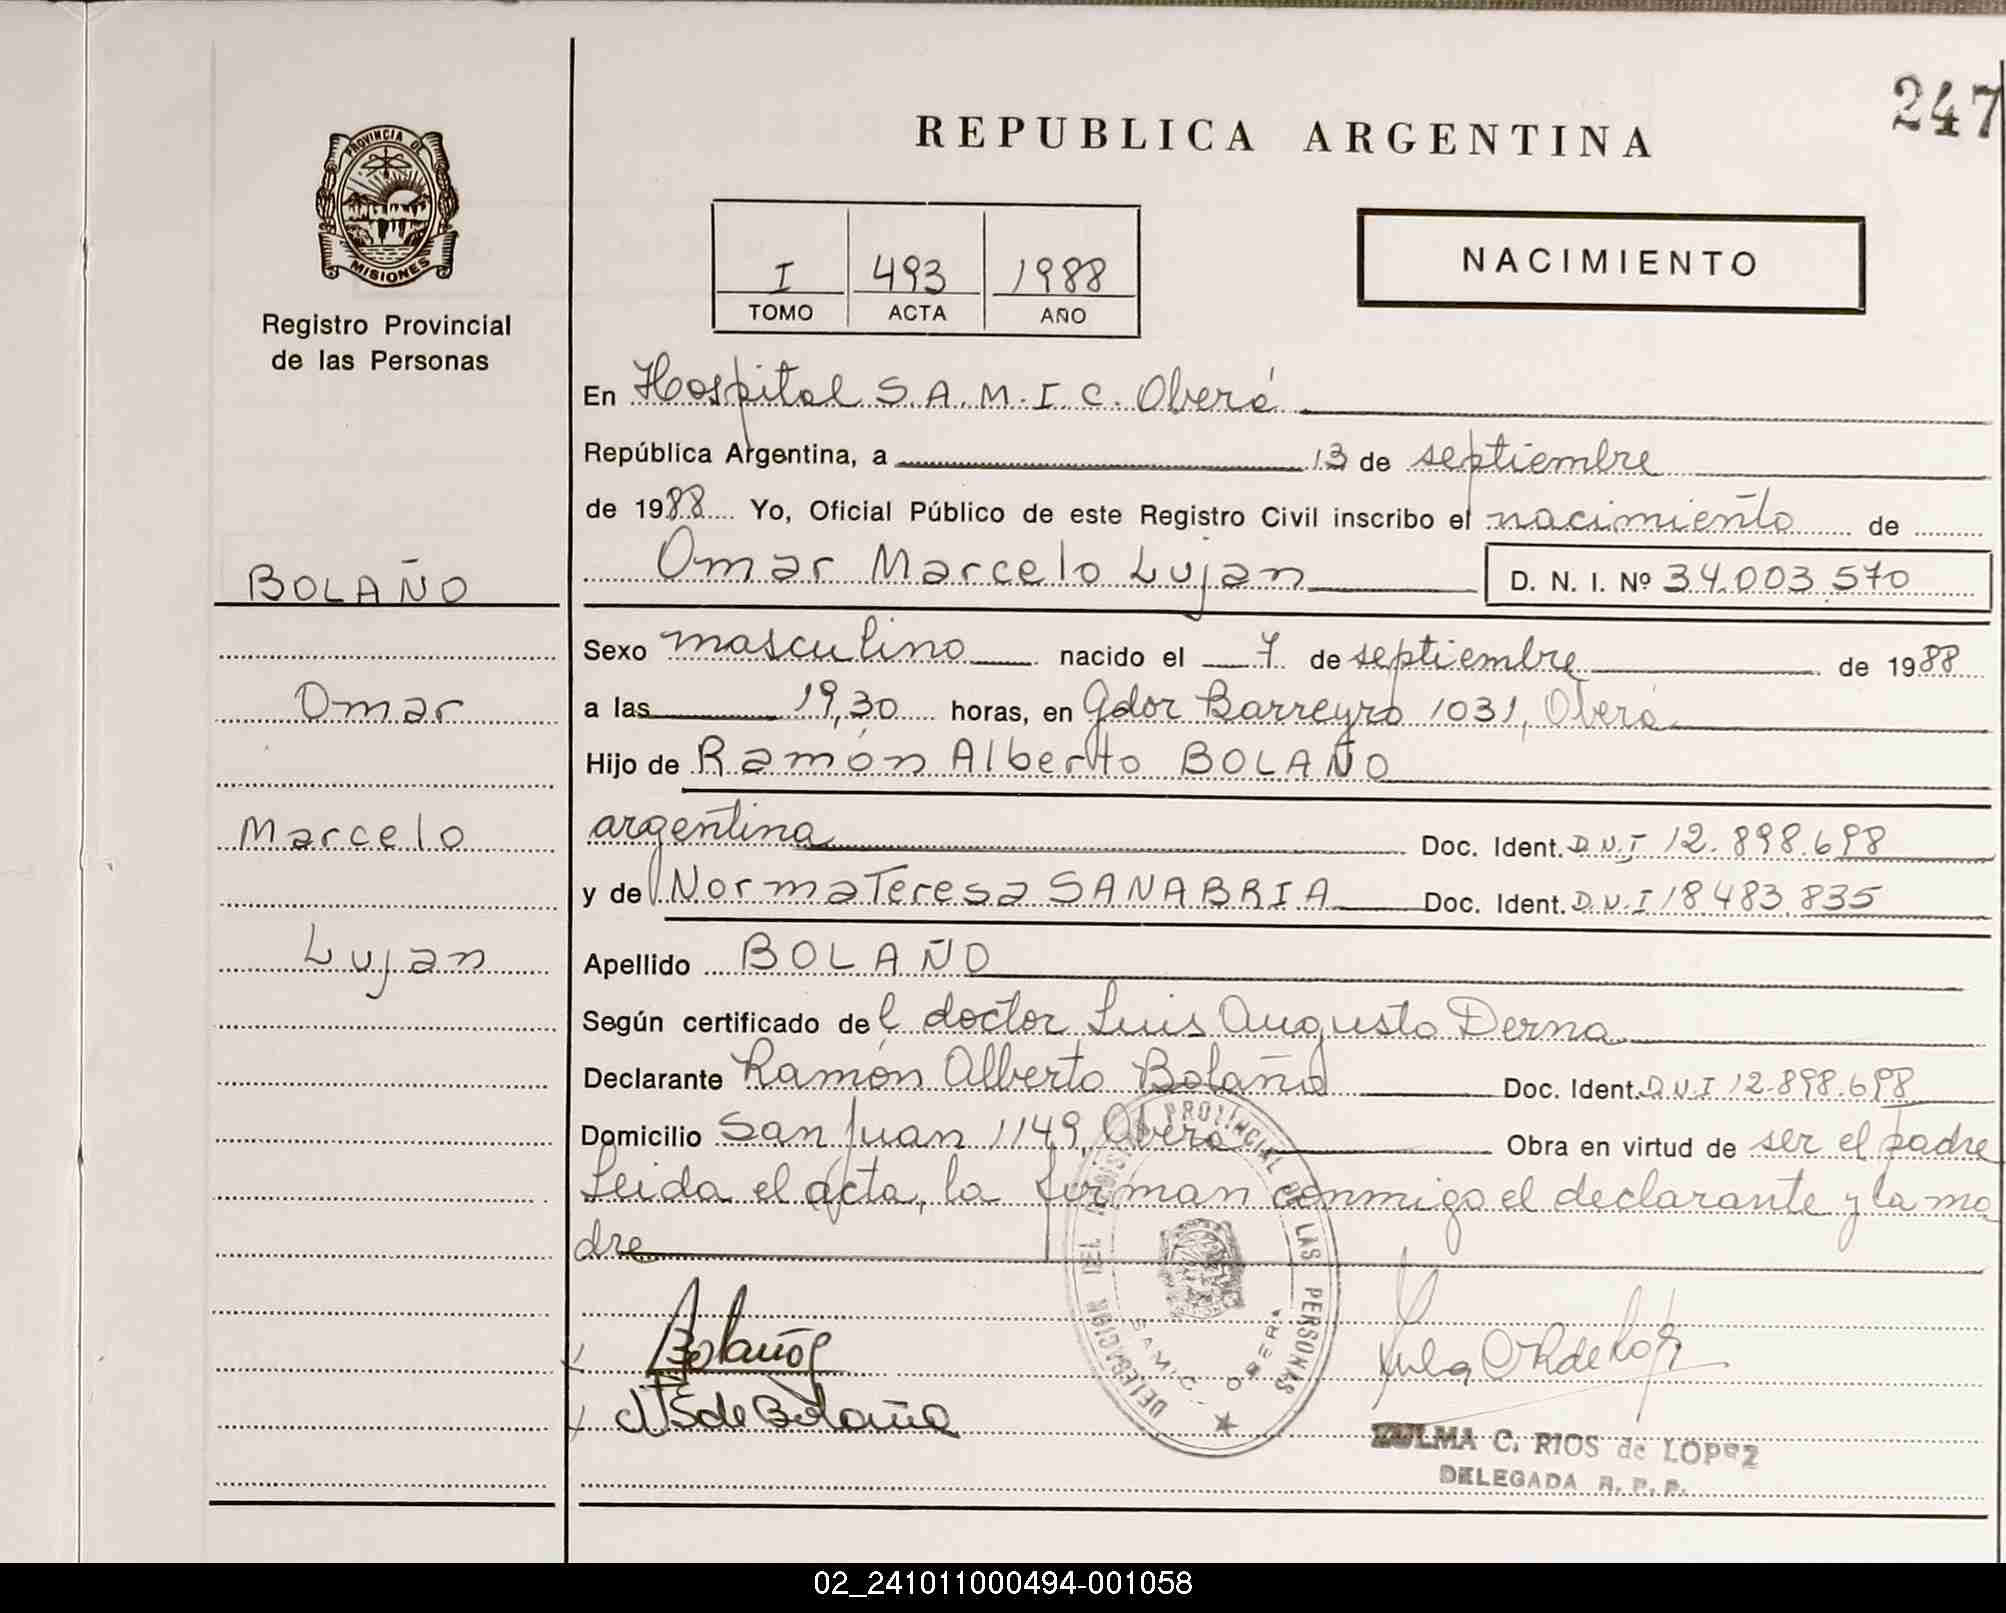 247
REPUBLICA ARGENTINA
PROVINCIA DE
MISIONES
Registro Provincial
de las Personas
I 493 1988
TOMO ACTA AÑO
NACIMIENTO
En Hospital S.A.M.I.C. Oberá
República Argentina, a 13 de septiembre
de 1988 Yo, Oficial Público de este Registro Civil inscribo el nacimiento de
BOLAÑO
Omar Marcelo Lujan
D. N. I. Nº 34.003.570
Sexo masculino nacido el 7 de septiembre de 1988
Omar
a las 19,30 horas, en Gdor Barreyro 1031, Oberá
Hijo de Ramón Alberto BOLAÑO
Marcelo
argentina Doc. Ident. D.N.I 12.898.698
y de Norma Teresa SANABRIA Doc. Ident. D.N.I 18.483.835
Lujan
Apellido BOLAÑO
Según certificado del doctor Luis Augusto Derna
Declarante Ramón Alberto Bolaño Doc. Ident. D.N.I 12.898.698
Domicilio San Juan 1149, Oberá Obra en virtud de ser el padre
Leida el acta, la firman conmigo el declarante y la ma
dre
DELEGACION DEL REGISTRO PROVINCIAL DE LAS PERSONAS
SAMIC OBERA
Bolaño
NTS de Bolaño
ZULMA C. RIOS de LOPEZ
DELEGADA R. P. P.
02_241011000494-001058